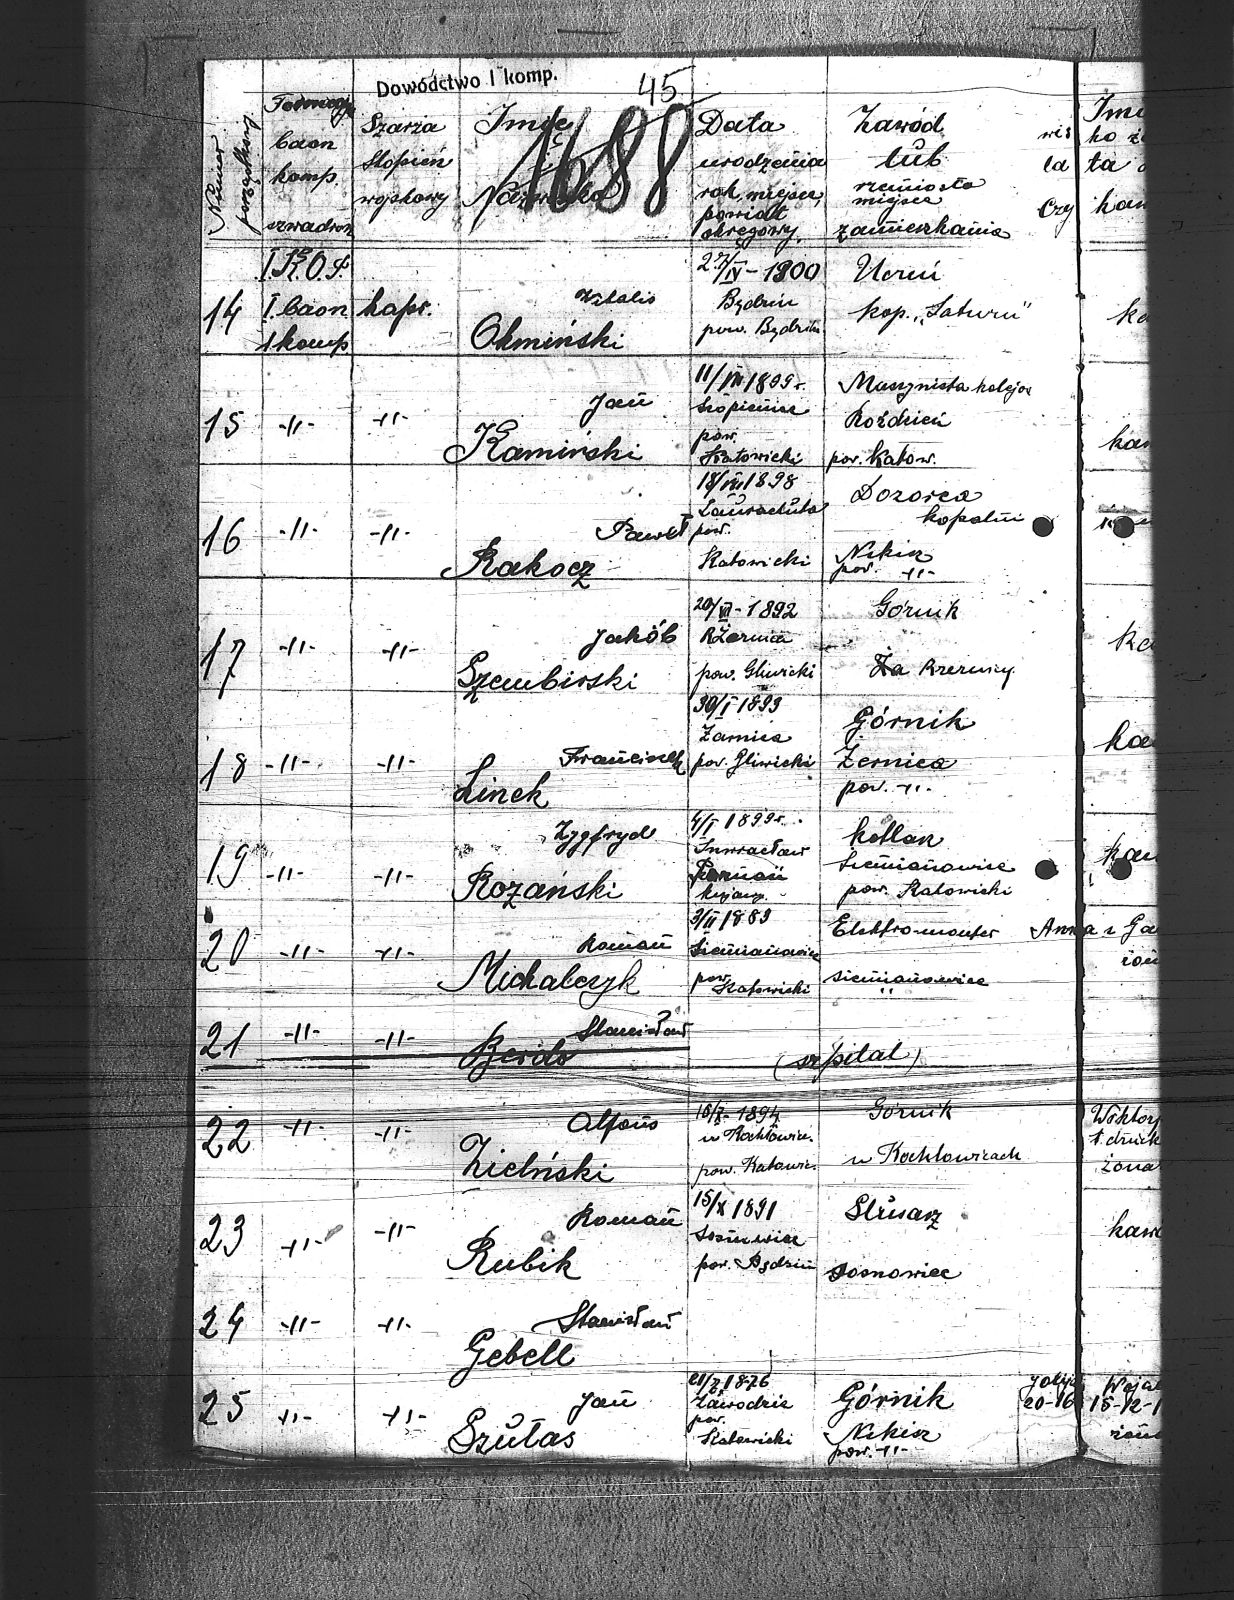 Dowództwo I komp.
45
1688
Numer porządkowy
baon
komp.
szwadron
Szarża
Stopień
wojskowy
Imię
i
Nazwisko
Data
urodzenia
rok, miejsce,
powiat
okręgowy
Zawód
lub
rzemiosło
miejsce
zamieszkania
wis
la
Czy
Imi
ko ż
ta
kaw
14
I. baon
1 komp
kapr.
Witalis
Okmiński
27/IV - 1800
Będzin
pow. Będzin
Uczeń
kop. „Saturn"
ka
15
-"-
-"-
Jan
Kamiński
11/VII 1899 r.
Szopienice
pow.
Katowicki
Maszynista kolejow
Roździeń
pow. Katow.
kaw
16
-"-
-"-
Paweł
Rakocz
18/VII 1898
Laurachuta
pow.
Katowicki
Dozorca
kopalni
Nikisz
pow. -"-
17
-"-
-"-
Jakób
Szembirski
20/VII - 1892
pow. Gliwicki
Górnik
Ża
ka
18
-"-
-"-
Franciszek
Linek
30/I 1893
Żarnica
pow. Gliwicki
Górnik
Żernica
pow. -"-
ka
19
-"-
-"-
Zygfryd
Rozański
4/I 1899 r.
Inwracław
Poznań
kujawy
kotlarz
Siemianowice
pow. Katowicki
kaw
20
-"-
-"-
Roman
Michalczyk
3/II 1889
Siemianowice
pow.
Katowicki
Elektromonter
siemianowice
"
Anna z Ga
żon
21
-"-
-"-
Stanisław
Berdo
(szpital)
22
-"-
-"-
Alfons
Zielński
16/X - 1894
w Kochłowic.
pow. Katowic.
Górnik
w Kochłowicach
Wiktory
żona
23
-"-
-"-
Roman
Rubik
15/X 1891
Sosnowice
pow. Będzin
Ślusarz
Sosnowiec
kaw
24
-"-
-"-
Stanisław
Gebell
25
-"-
-"-
Jan
Szułas
21/X 1876
Zawodzie
pow.
Katowicki
Górnik
Nikisz
pow. -"-
20-16
15-12-1
żon